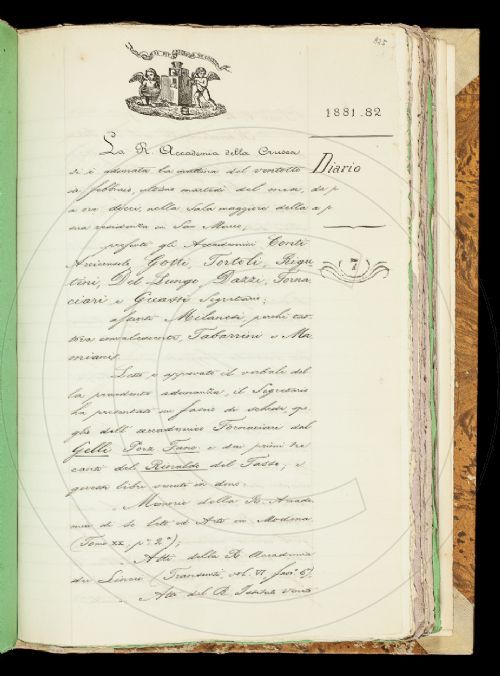 825
1881.82
Diario
7
La R. Accademia della Crusca
si è adunata la mattina del ventotto
di febbraio, ultimo martedì del mese, da p
a ore dieci, nella Sala maggiore della a p
sua residenza in San Marco,
presenti gli Accademici Conti
Arciconsolo, Gotti, Tortoli, Rigu
tini, Del Lungo, Dazzi, Forna
ciari e Guasti Segretario;
assenti Milanesi, perchè tut
tora convalescente, Tabarrini e Ma
miani.
Letto e approvato il verbale del
la precedente adunanza, il Segretario
ha presentato un fascio di schede spo
glio dell'accademico Fornaciari dal
Gelli Porz. Tano e dai primi tre
canti del Rinaldo del Tasso; e
questi libri venuti in dono:
Memorie della R. Accade
mia di Sc. lett. ed Arti in Modena
(Tomo XX, p.e 2.a);
Atti della R. Accademia
dei Lincei (Transunti, vol. VI, fasc. 6°),
Atti del R. Istituto Vene